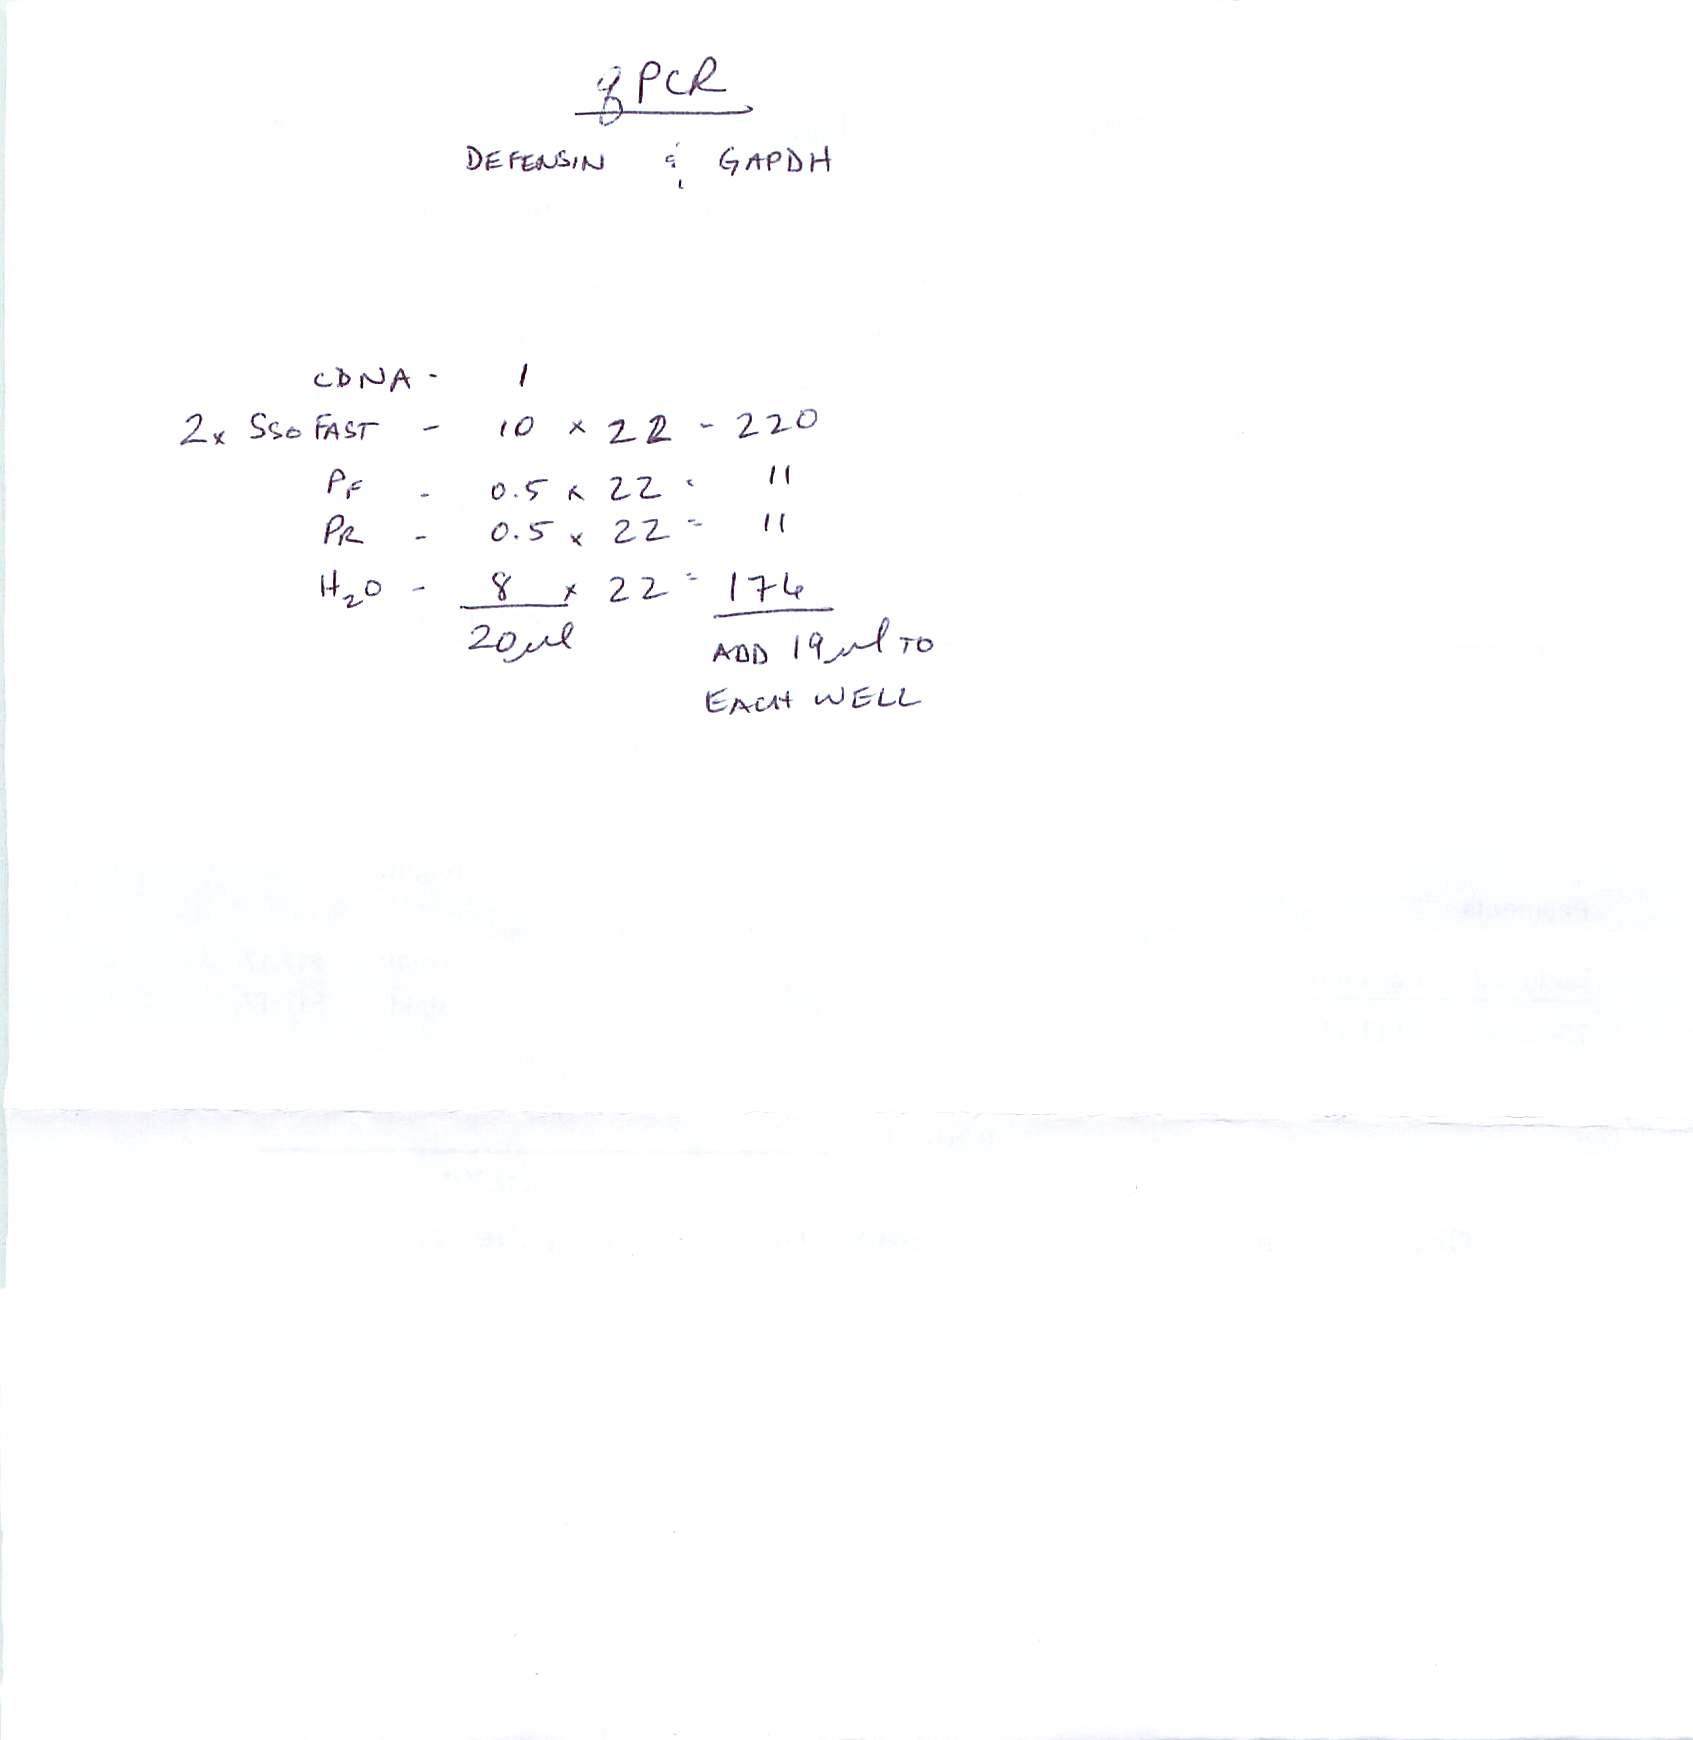 qPCR
DEFENSIN & GAPDH
CDNA - 1
2x SSO FAST - 10 x 22 - 220
PF - 0.5 x 22 = 11
PR - 0.5 x 22 = 11
H2O - 8 x 22 = 176
20µl
ADD 19µl TO
EACH WELL